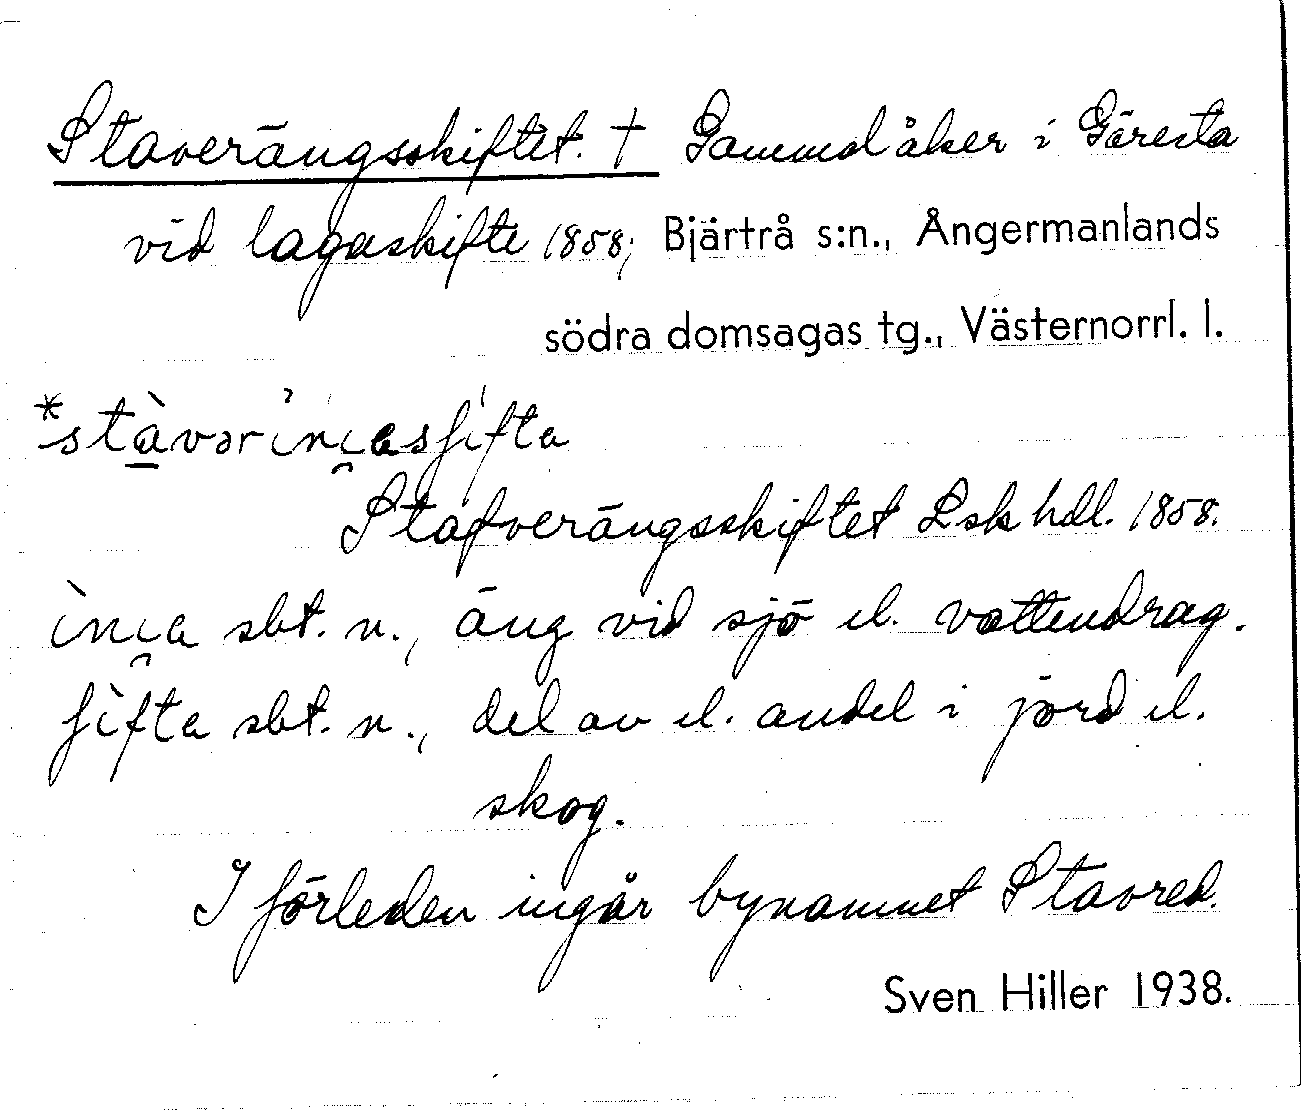 Staverängsskiftet. † Gammal åker i Gäresta
vid lagaskifte 1858; Bjärtrå s:n., Ångermanlands
södra domsagas tg., Västernorrl. l.
Stafverängsskiftet Lsk hdl. 1858.
sbt. n., äng vid sjö el. vattendrag.
sbt. n., del av el. andel i jord el.
skog.
I förleden ingår bynamnet Stavred.
Sven Hiller 1938.